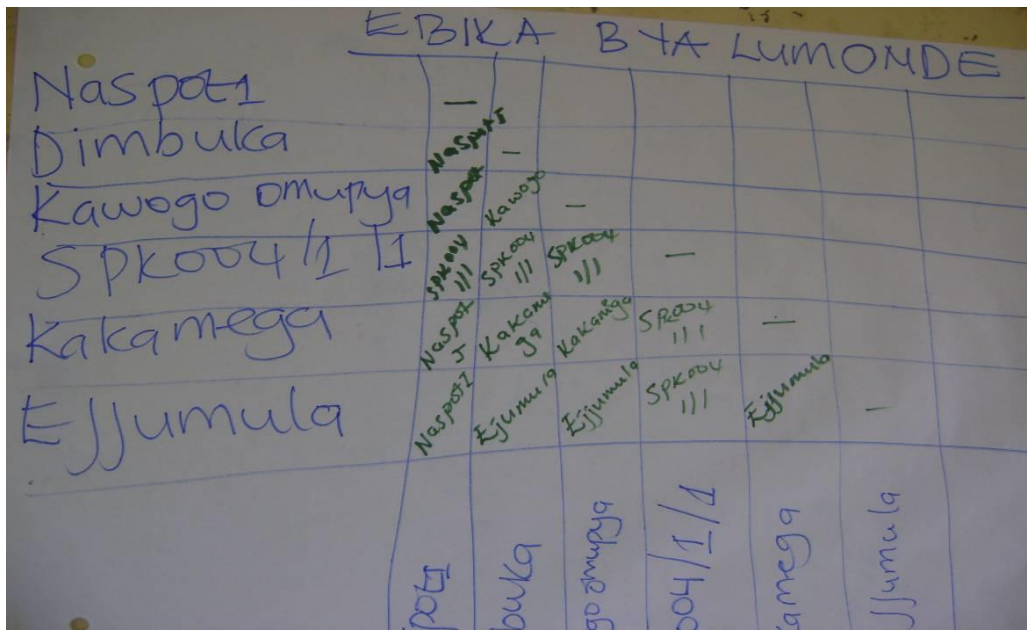 EBIKA BYA LUMONDE
Naspot1 —
Dimbuka Naspot 1 —
Kawogo omupya Naspot Kawogo —
SPK004/1/1 SPK004 1/1 SPK004 1/1 SPK004 1/1 —
Kakamega Naspot 1 Kakamega Kakamega SPK004 1/1 —
Ejjumula Naspot1 Ejjumula Ejjumula SPK004 1/1 Ejjumula —
pot1 buka go omupya 004/1/1 amega jjumula